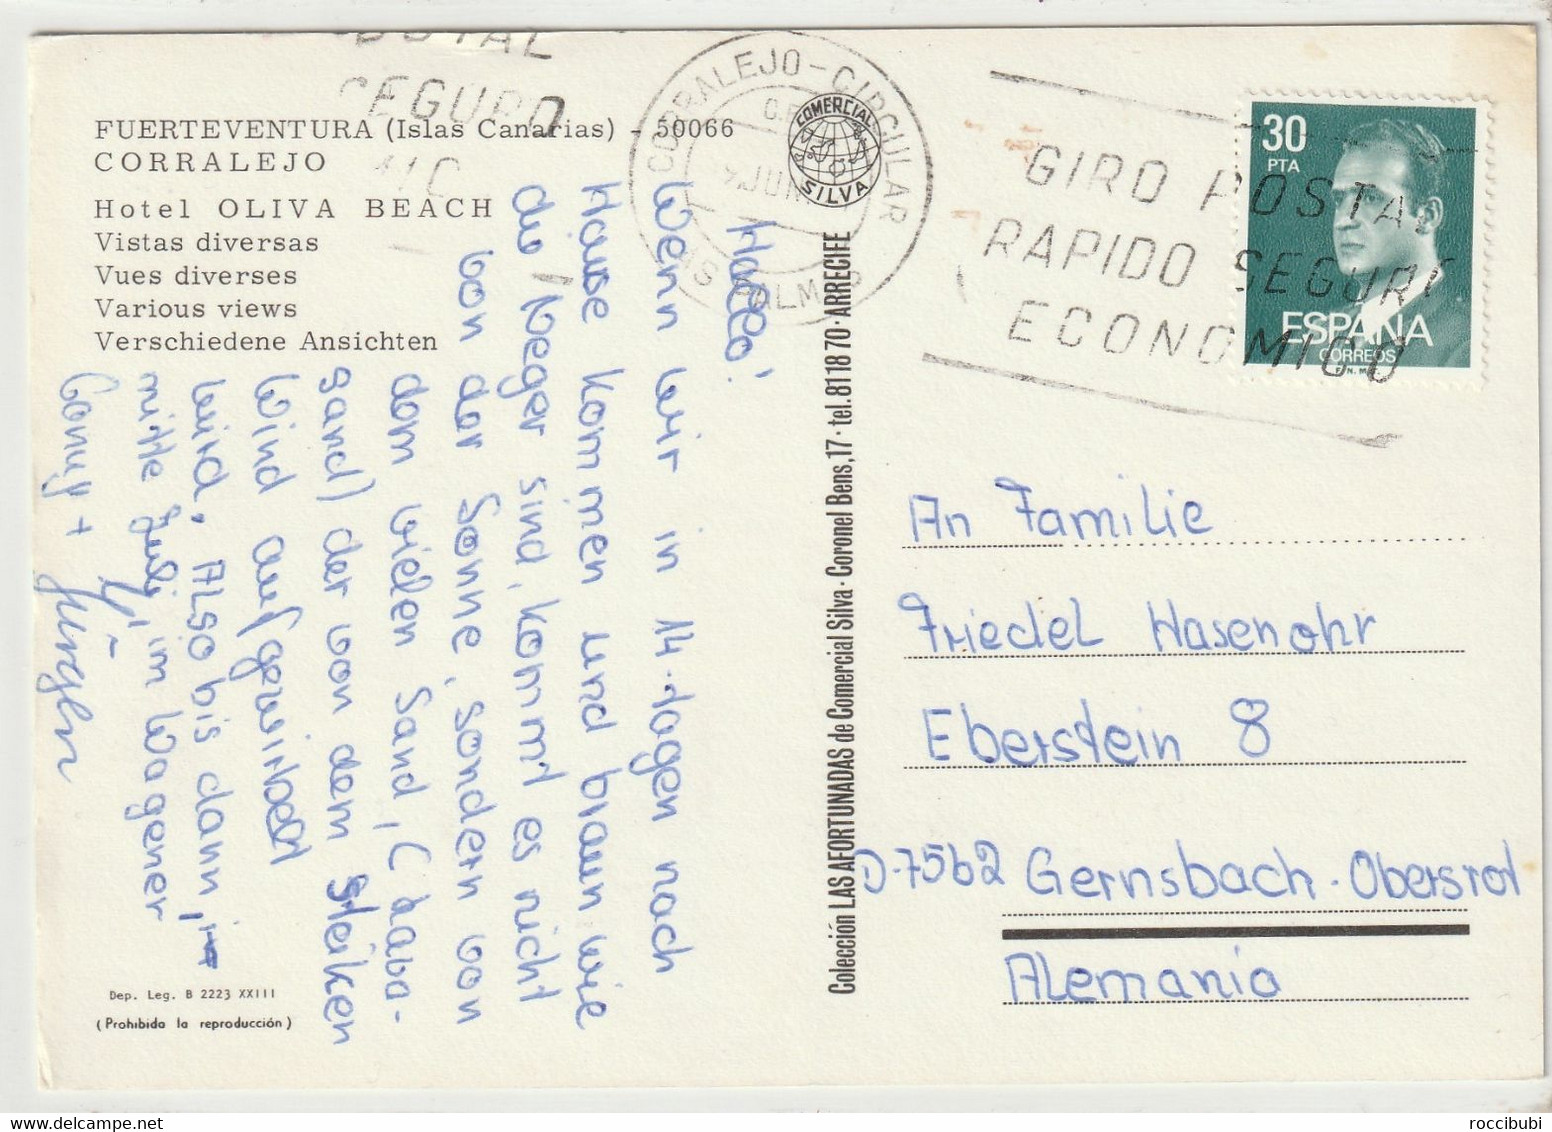 FUERTEVENTURA (Islas Canarias) - 50066
CORRALEJO
Hotel OLIVA BEACH
Vistas diversas
Vues diverses
Various views
Verschiedene Ansichten
Hallo!
Wenn wir in 14 Tagen nach
Hause kommen und braun wie
die Neger sind, kommt es nicht
von der Sonne, sondern von
dem vielen Sand, (
sand) der von dem
Wind aufgewirbelt
wird. Also bis dann,
mitte Juli im Wagener
Conny +
Jürgen
Dep. Leg. B 2223 XXIII
(Prohibida la reproducción)
Colección LAS AFORTUNADAS de Comercial Silva · Coronel Bens, 17 · tel. 81 18 70 · ARRECIFE
COMERCIAL
SILVA
CORRALEJO-CIRCULAR
LAS PALMAS
JUN
SEGURO
GIRO POSTAL
RAPIDO SEGURO
ECONOMICO
30
PTA
ESPAÑA
CORREOS
An Familie
Friedel Hasenohr
Eberstein 8
D-7562 Gernsbach-Obersrot
Alemania
roccibubi